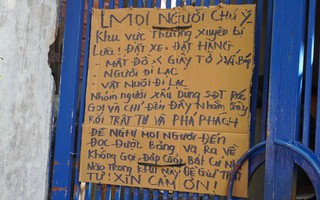 MỌI NGƯỜI CHÚ Ý
Khu vực Thường xuyên bị
Lừa! ĐẶT XE - ĐẶT HÀNG
- MẤT ĐỒ < GIẤY TỜ >
NGƯỜI ĐI LẠC
- VẬT NUÔI ĐI LẠC
Nhóm người xấu Dùng SĐT Rác
GỌI VÀ CHỈ ĐẾN ĐÂY Nhằm Gây
RỐI TRẬT TỰ VÀ PHÁ PHÁCH
ĐỀ NGHỊ MỌI NGƯỜI ĐẾN
ĐỌC ĐƯỢC BẢNG VÀ RA VỀ
KHÔNG GỌI, ĐẬP CỔNG Bất Cứ Nhà
Nào Trong KHU NÀY ĐỂ GIỮ TRẬT
TỰ! XIN CẢM ƠN!